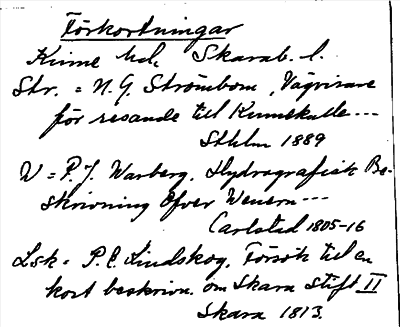 Förkortningar
Kinne hd. Skarab. l.
Str. = N. G. Strömbom, Vägvisare
för resande till Kinnekulle ---
Sthlm 1889
W = P. J. Warberg. Hydrografisk Be-
skrivning öfver Wenern ---
Carlstad 1805-16
Lsk = P. E. Lindskog. Försök till en
kort beskrivn. om Skara Stift II
Skara 1813.